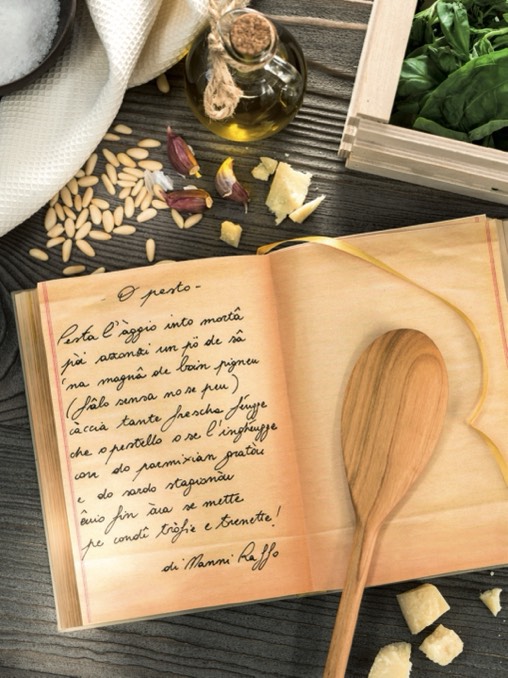 O pesto -
Pesta l'àggio into mortâ
pöi azonzi un pö de sâ
'na magnâ de boin pigneu
(fâlo sensa no se peu)
càccia tante frescha féugge
che o pestello o se l'inghéugge
con do parmixian gratòu
e do sardo stagionòu
êuio fin òua se mette
pe condî tròfie e trenette!
di Nanni Raffo